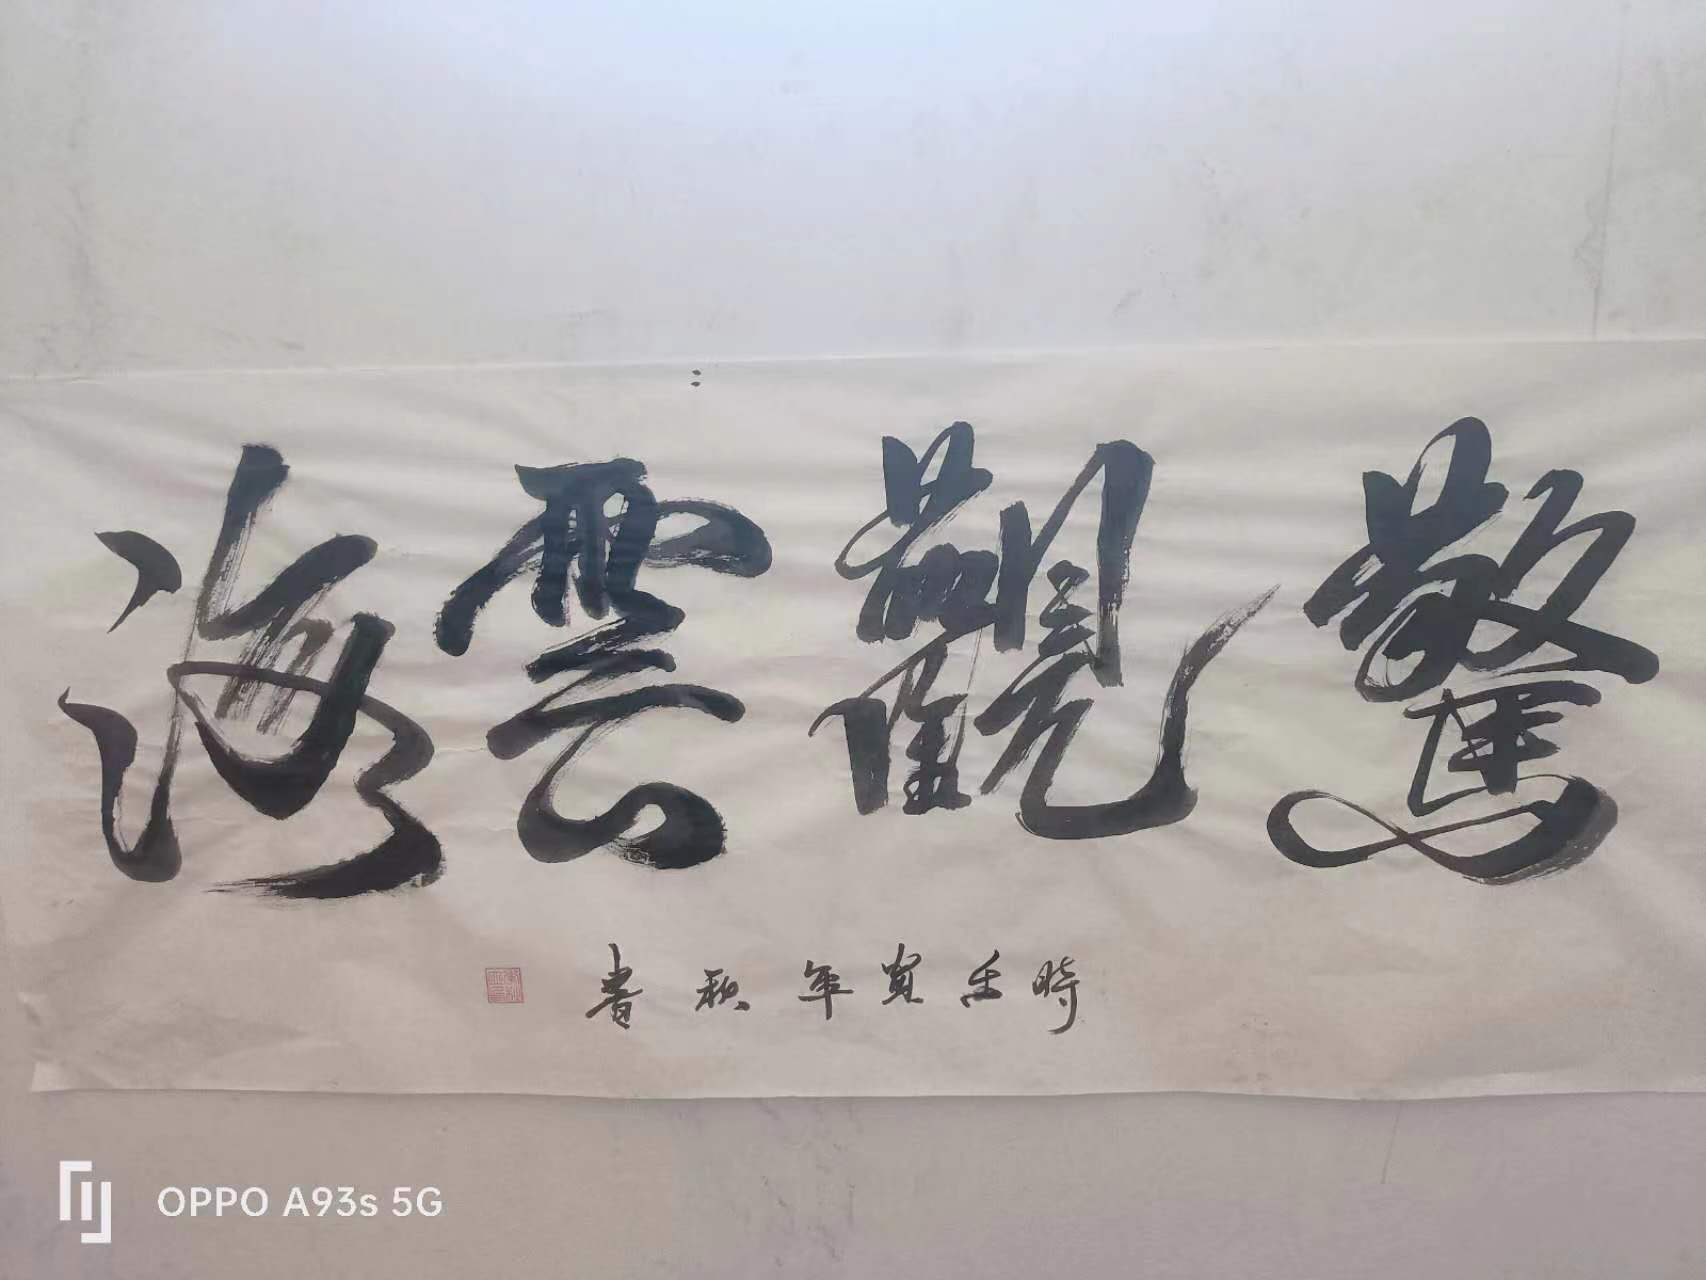 驚觀雲海
時壬寅年秋書
OPPO A93s 5G